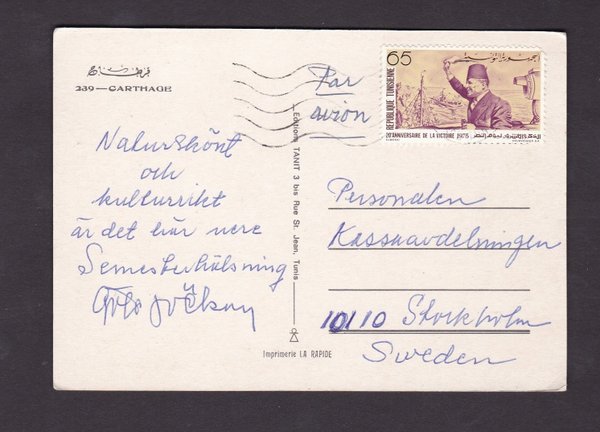 قرطاج
239—CARTHAGE
Naturskönt
och
kulturrikt
är det här nere
Semesterhälsning
Editions TANIT 3 bis Rue St. Jean, Tunis
Imprimerie LA RAPIDE
Par
avion
65
REPUBLIQUE TUNISIENNE
20e ANNIVERSAIRE DE LA VICTOIRE 1975
Personalen
Kassaavdelningen
10110 Stockholm
Sweden